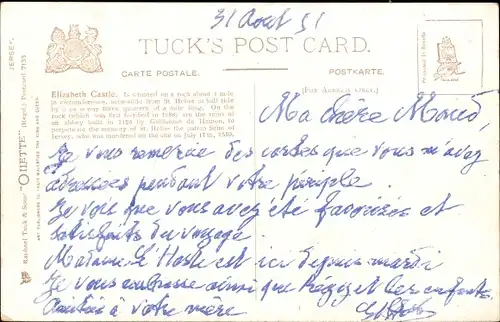 31 Août 51
TUCK'S POST CARD.
CARTE POSTALE.
POSTKARTE.
(FOR ADDRESS ONLY.)
JERSEY.
Raphael Tuck & Sons' "OILETTE" (Regd.) Postcard 7135
ART PUBLISHERS TO THEIR MAJESTIES THE KING AND QUEEN.
Elizabeth Castle. Is situated on a rock about 1 mile
in circumference, accessible from St. Helier at half tide
by a three quarters of a mile long. On the
rock (which was first fortified in 1551) are the ruins of
an abbey built in 1125 by Guillaume de Hamon, to
perpetuate the memory of St. Helier the patron Saint of
Jersey, who was murdered on the site on July 17th,
Ma chère Maud,
Je vous remercie des cartes que vous m'avez
adressées pendant votre périple.
Je vois que vous avez été favorisés et
satisfaits du voyage.
Madame L'Hoste est ici depuis mardi
Je vous embrasse ainsi que et les enfants.
Amitiés à votre mère